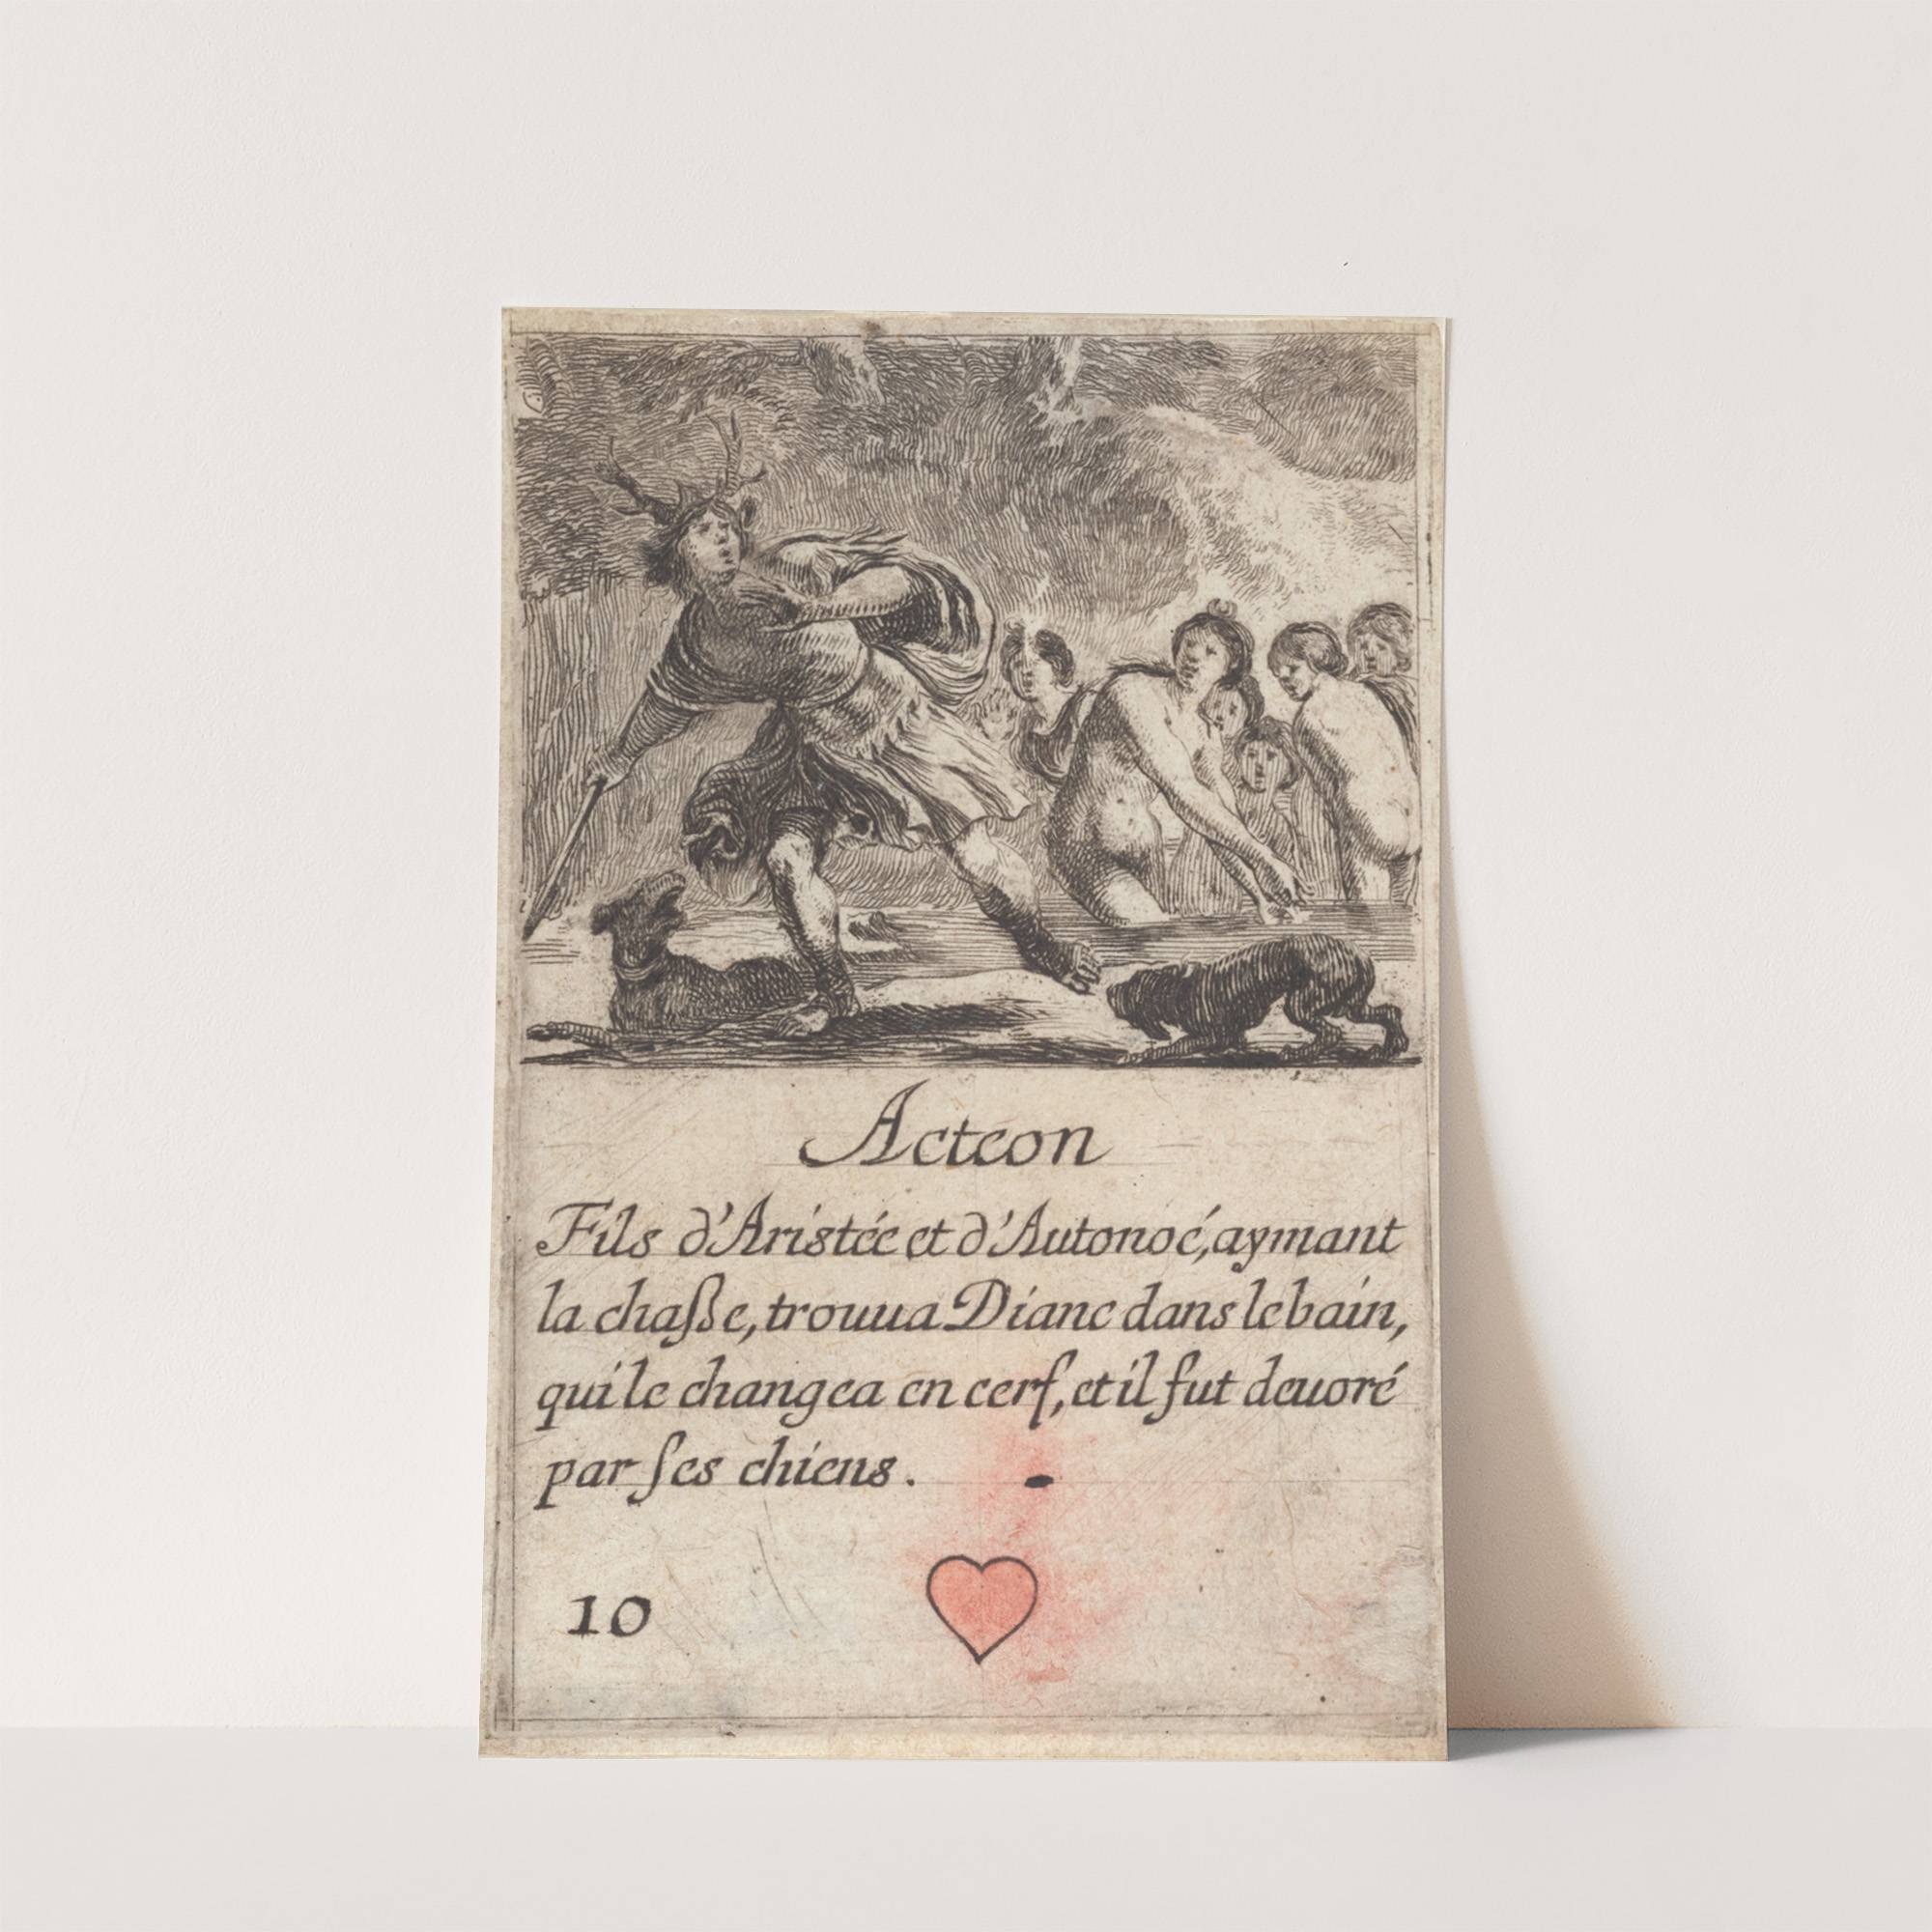 Acteon
Fils d'Aristée et d'Autonoé, aymant
la chaſse, trouua Diane dans le bain,
qui le changea en cerf, et il fut deuoré
par ſes chiens.
10